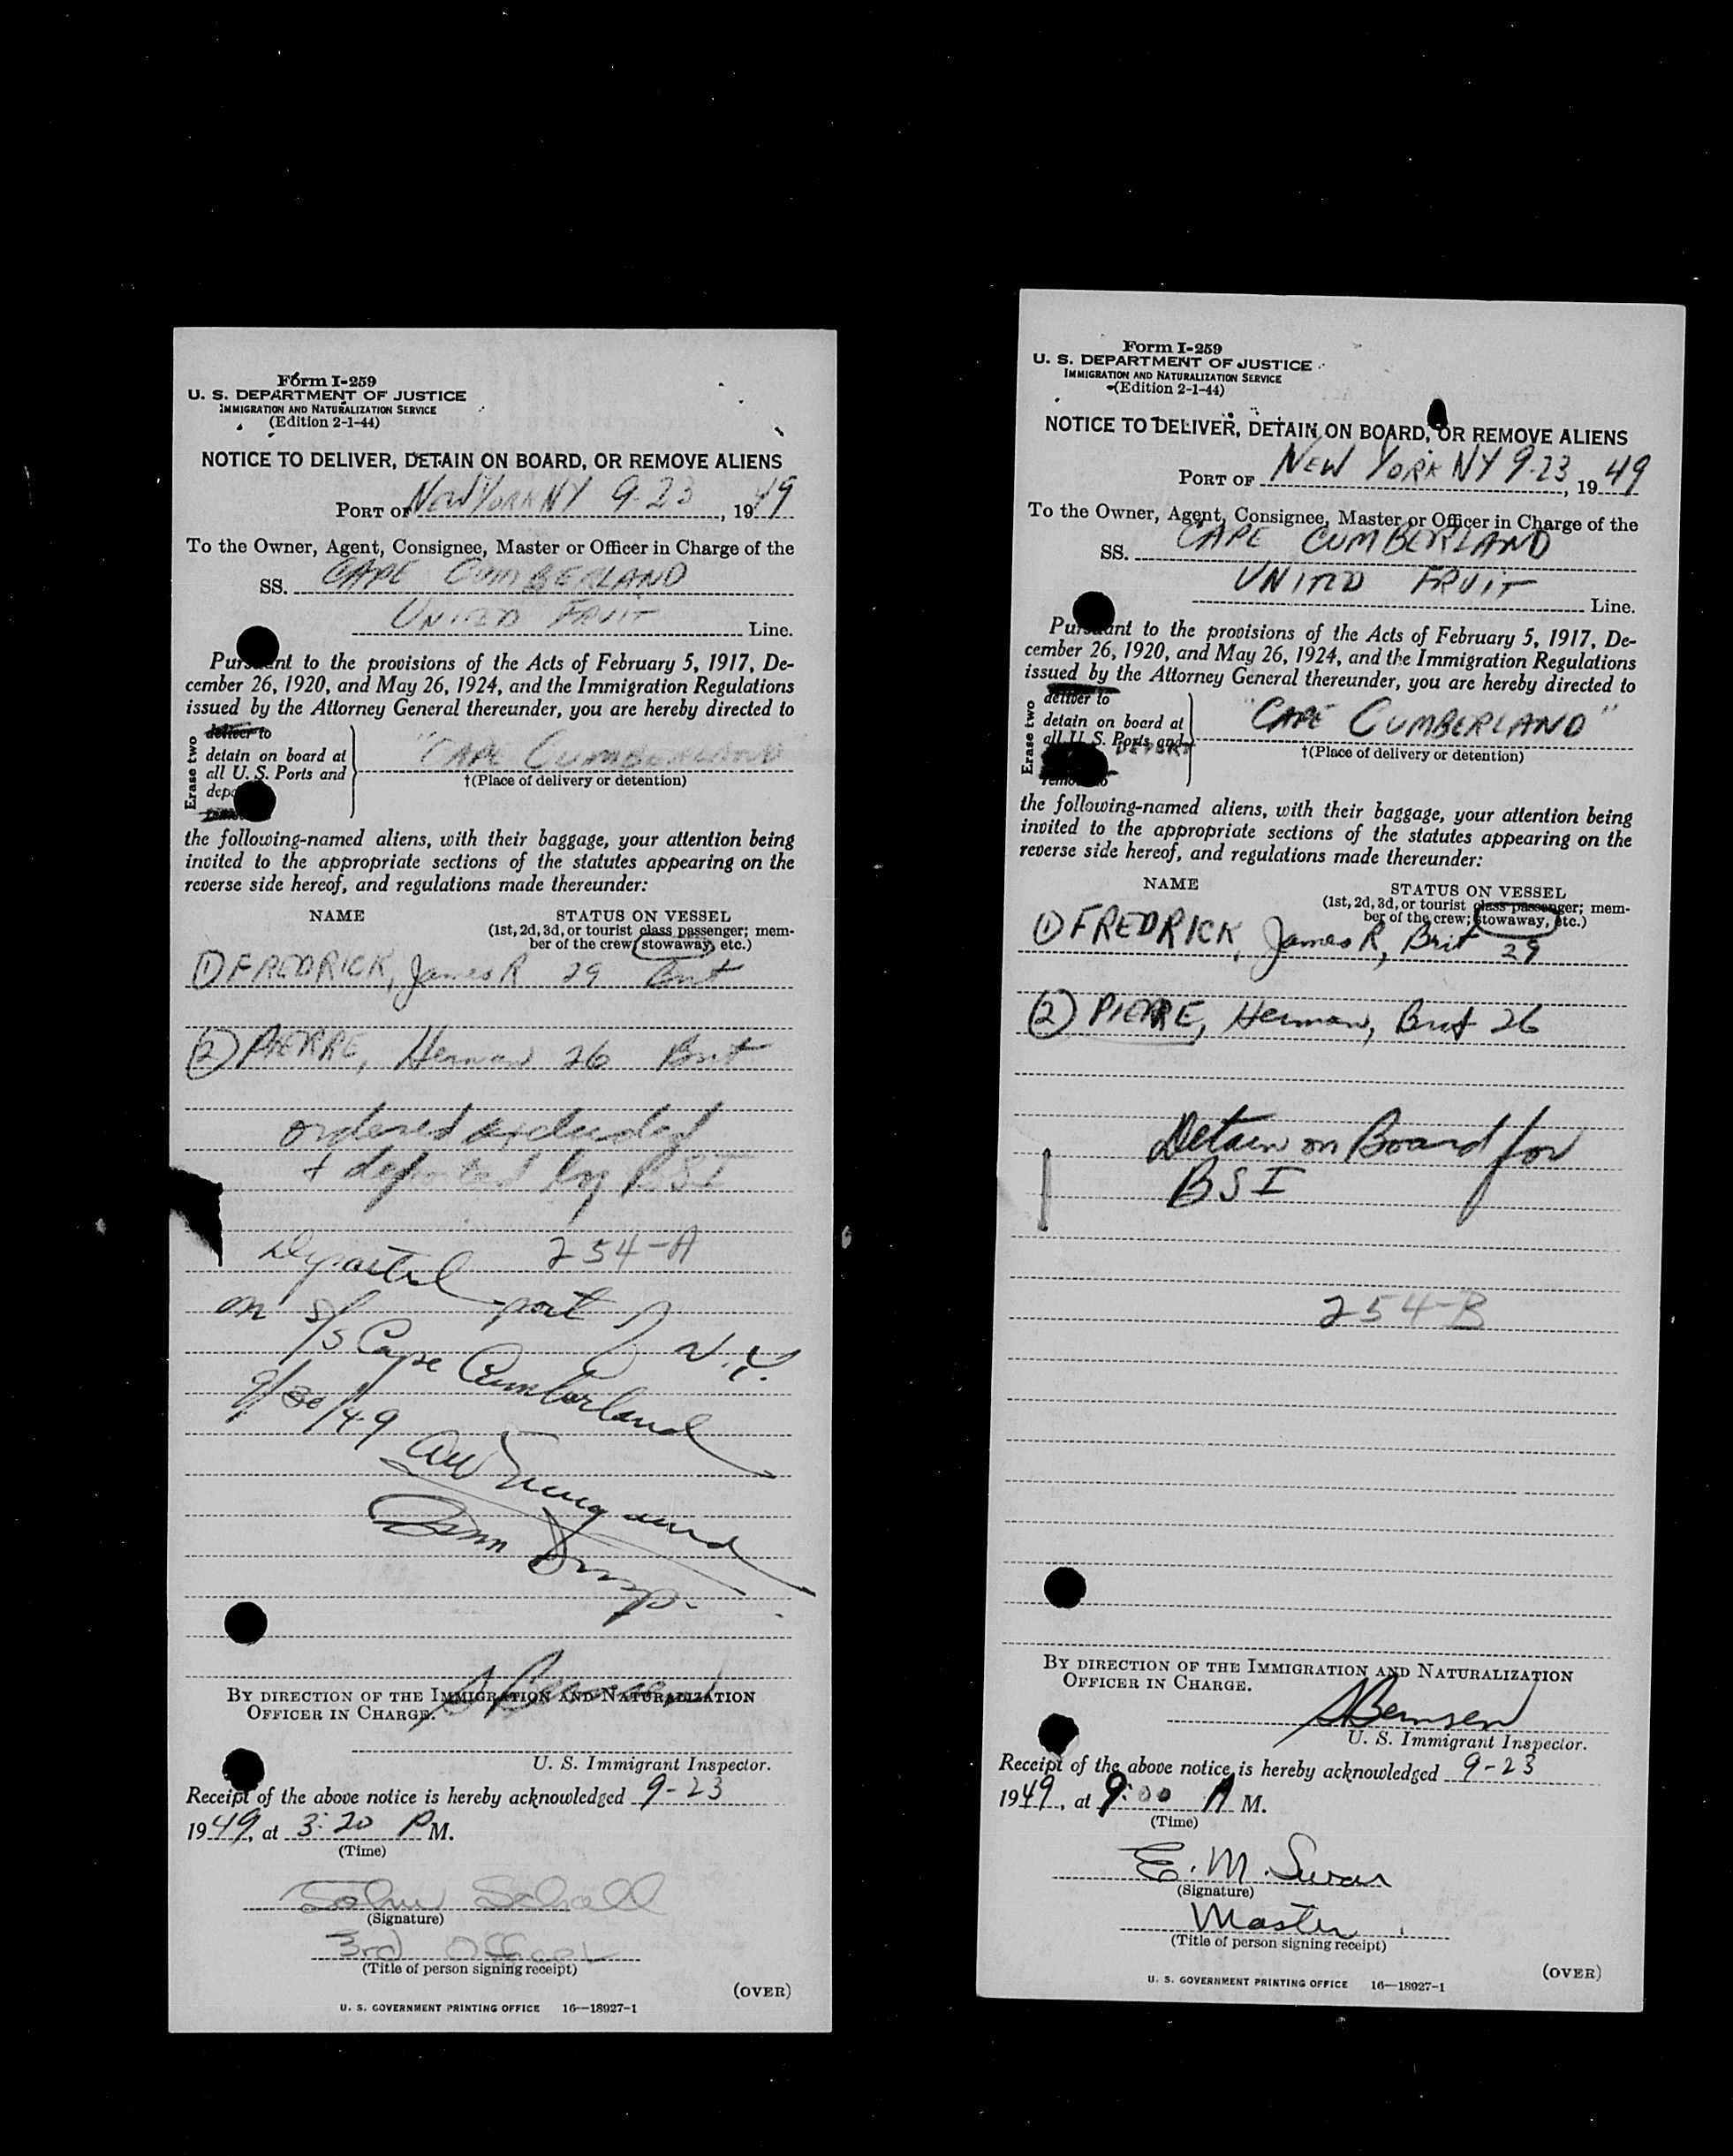 Form I-259
U. S. DEPARTMENT OF JUSTICE
IMMIGRATION AND NATURALIZATION SERVICE
(Edition 2-1-44)
NOTICE TO DELIVER, DETAIN ON BOARD, OR REMOVE ALIENS
PORT OF NEW YORK NY 9-23, 1949
To the Owner, Agent, Consignee, Master or Officer in Charge of the
SS. CAPE CUMBERLAND
UNITED FRUIT Line.
Pursuant to the provisions of the Acts of February 5, 1917, De-
cember 26, 1920, and May 26, 1924, and the Immigration Regulations
issued by the Attorney General thereunder, you are hereby directed to
Erase two
deliver to
detain on board at
all U. S. Ports and
"CAPE CUMBERLAND
†(Place of delivery or detention)
the following-named aliens, with their baggage, your attention being
invited to the appropriate sections of the statutes appearing on the
reverse side hereof, and regulations made thereunder:
NAME STATUS ON VESSEL
(1st, 2d, 3d, or tourist class passenger; mem-
ber of the crew; stowaway, etc.)
(1) FREDRICK, James R 29 Brit
(2) PIERRE, Herman 26 Brit
ordered excluded
+ deported by BSI
254-A
Departed port of N.Y.
on S/S Cape Cumberland
9/30/49
S Bemsen
BY DIRECTION OF THE IMMIGRATION AND NATURALIZATION
OFFICER IN CHARGE.
U. S. Immigrant Inspector.
Receipt of the above notice is hereby acknowledged 9-23
1949, at 3:20 P M.
(Time)
John Schall
(Signature)
3rd Officer
(Title of person signing receipt)
(OVER)
U. S. GOVERNMENT PRINTING OFFICE 16—18927-1
Form I-259
U. S. DEPARTMENT OF JUSTICE
IMMIGRATION AND NATURALIZATION SERVICE
(Edition 2-1-44)
NOTICE TO DELIVER, DETAIN ON BOARD, OR REMOVE ALIENS
PORT OF NEW YORK NY 9-23, 1949
To the Owner, Agent, Consignee, Master or Officer in Charge of the
SS. CAPE CUMBERLAND
UNITED FRUIT Line.
Pursuant to the provisions of the Acts of February 5, 1917, De-
cember 26, 1920, and May 26, 1924, and the Immigration Regulations
issued by the Attorney General thereunder, you are hereby directed to
Erase two
deliver to
detain on board at
all U. S. Ports and
DEPORT
remove to
"CAPE CUMBERLAND"
†(Place of delivery or detention)
the following-named aliens, with their baggage, your attention being
invited to the appropriate sections of the statutes appearing on the
reverse side hereof, and regulations made thereunder:
NAME STATUS ON VESSEL
(1st, 2d, 3d, or tourist class passenger; mem-
ber of the crew; stowaway, etc.)
(1) FREDRICK, James R, Brit 29
(2) PIERRE, Herman, Brit 26
Detain on Board for
BSI
254-B
BY DIRECTION OF THE IMMIGRATION AND NATURALIZATION
OFFICER IN CHARGE.
S Bemsen
U. S. Immigrant Inspector.
Receipt of the above notice is hereby acknowledged 9-23
1949, at 9:00 A M.
(Time)
E. M. Swan
(Signature)
Master
(Title of person signing receipt)
(OVER)
U. S. GOVERNMENT PRINTING OFFICE 16—18927-1